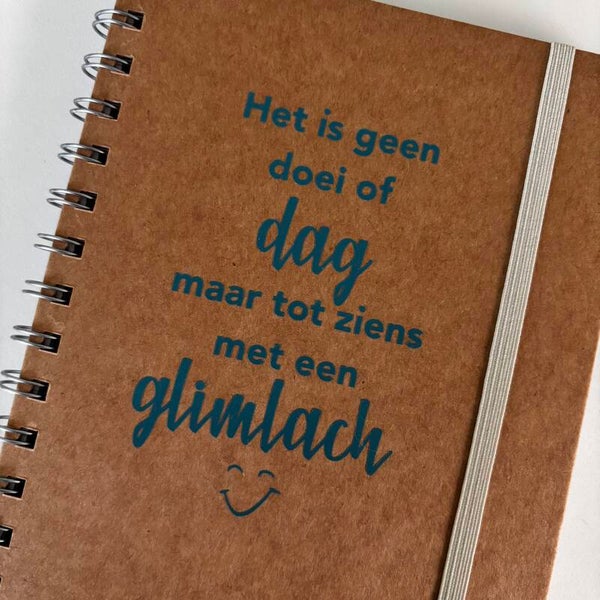 Het is geen
doei of
dag
maar tot ziens
met een
glimlach